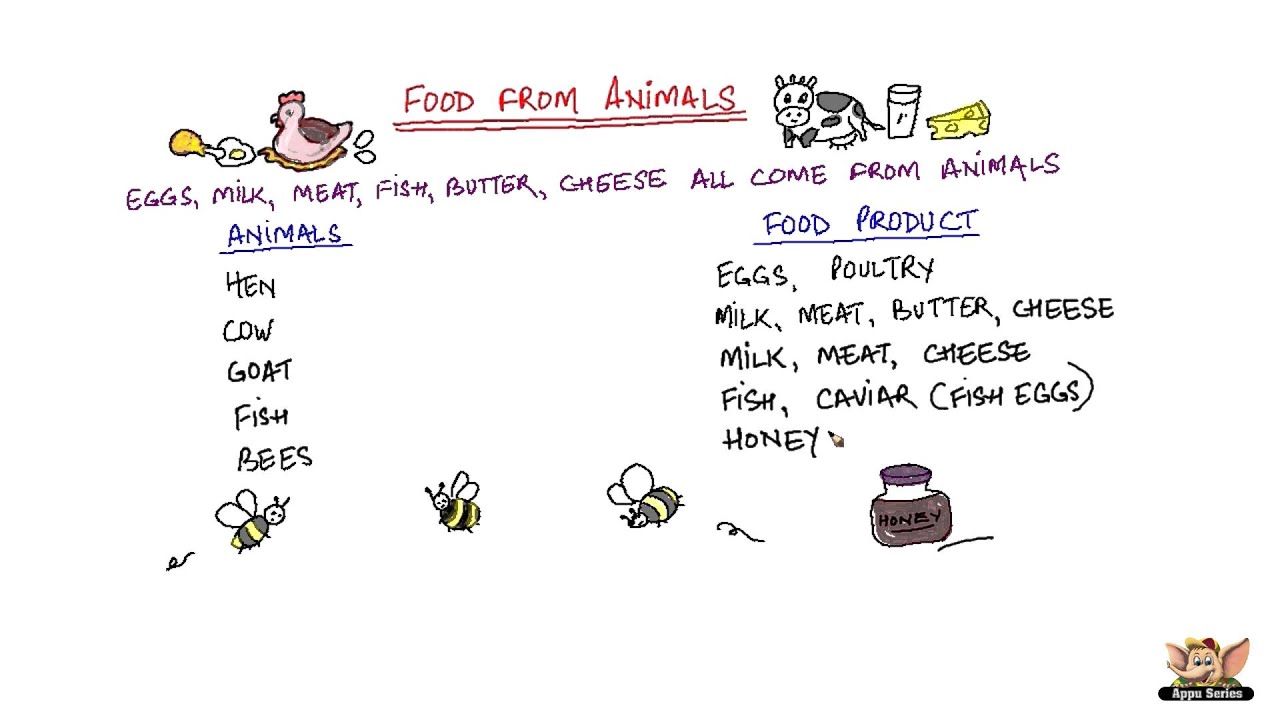 FOOD FROM ANIMALS
EGGS, MILK, MEAT, FISH, BUTTER, CHEESE ALL COME FROM ANIMALS
ANIMALS FOOD PRODUCT
HEN EGGS, POULTRY
COW MILK, MEAT, BUTTER, CHEESE
GOAT MILK, MEAT, CHEESE
FISH FISH, CAVIAR (FISH EGGS)
BEES HONEY
HONEY
Appu Series